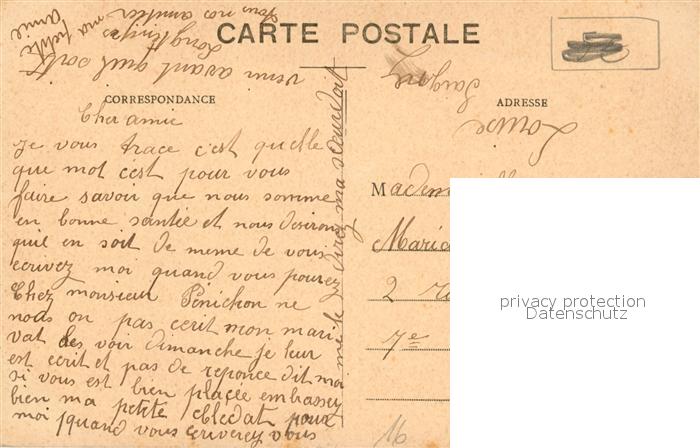 CARTE POSTALE
CORRESPONDANCE
ADRESSE
Cher amie
Je vous trace c'est quelle
que mot c'est pour vous
faire savoir que nous somme
en bonne santée et nous desirons
qu'il en soit de meme de vous
ecrivez moi quand vous pourez
Chez monsieur Penichon ne
nous on pas ecrit mon mari
vat les voir dimanche je leur
est ecrit et pas de reponce dit moi
si vous est bien placée embassez
bien ma petite Cledat pour
moi quand vous ecriverez vous
me le direz ma
venu avant quel sorte
Longtemps ma petite
Tous nos amitiés
annie
Louise
Mademoi
Marie
2 ru
7e
16
privacy protection
Datenschutz